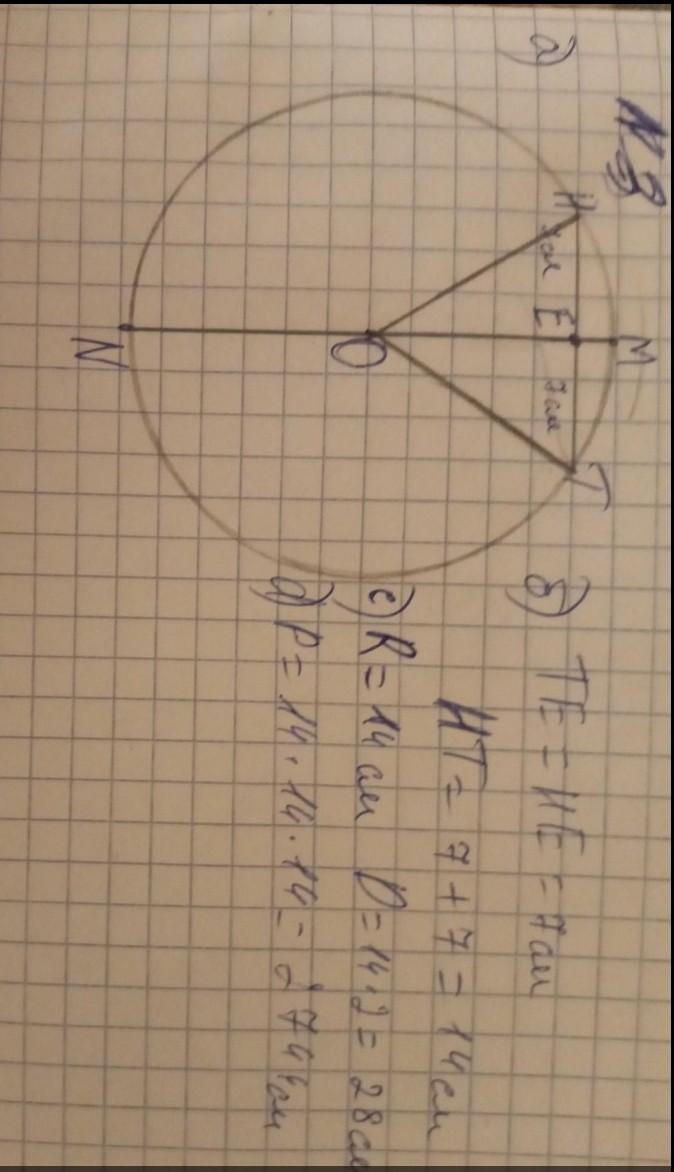 №3
а)
H
7см
E
7см
T
M
O
N
б) TE = HE = 7см
HT = 7 + 7 = 14см
с) R = 14 см D = 14 · 2 = 28см
д) P = 14 · 14 · 14 = 2744см